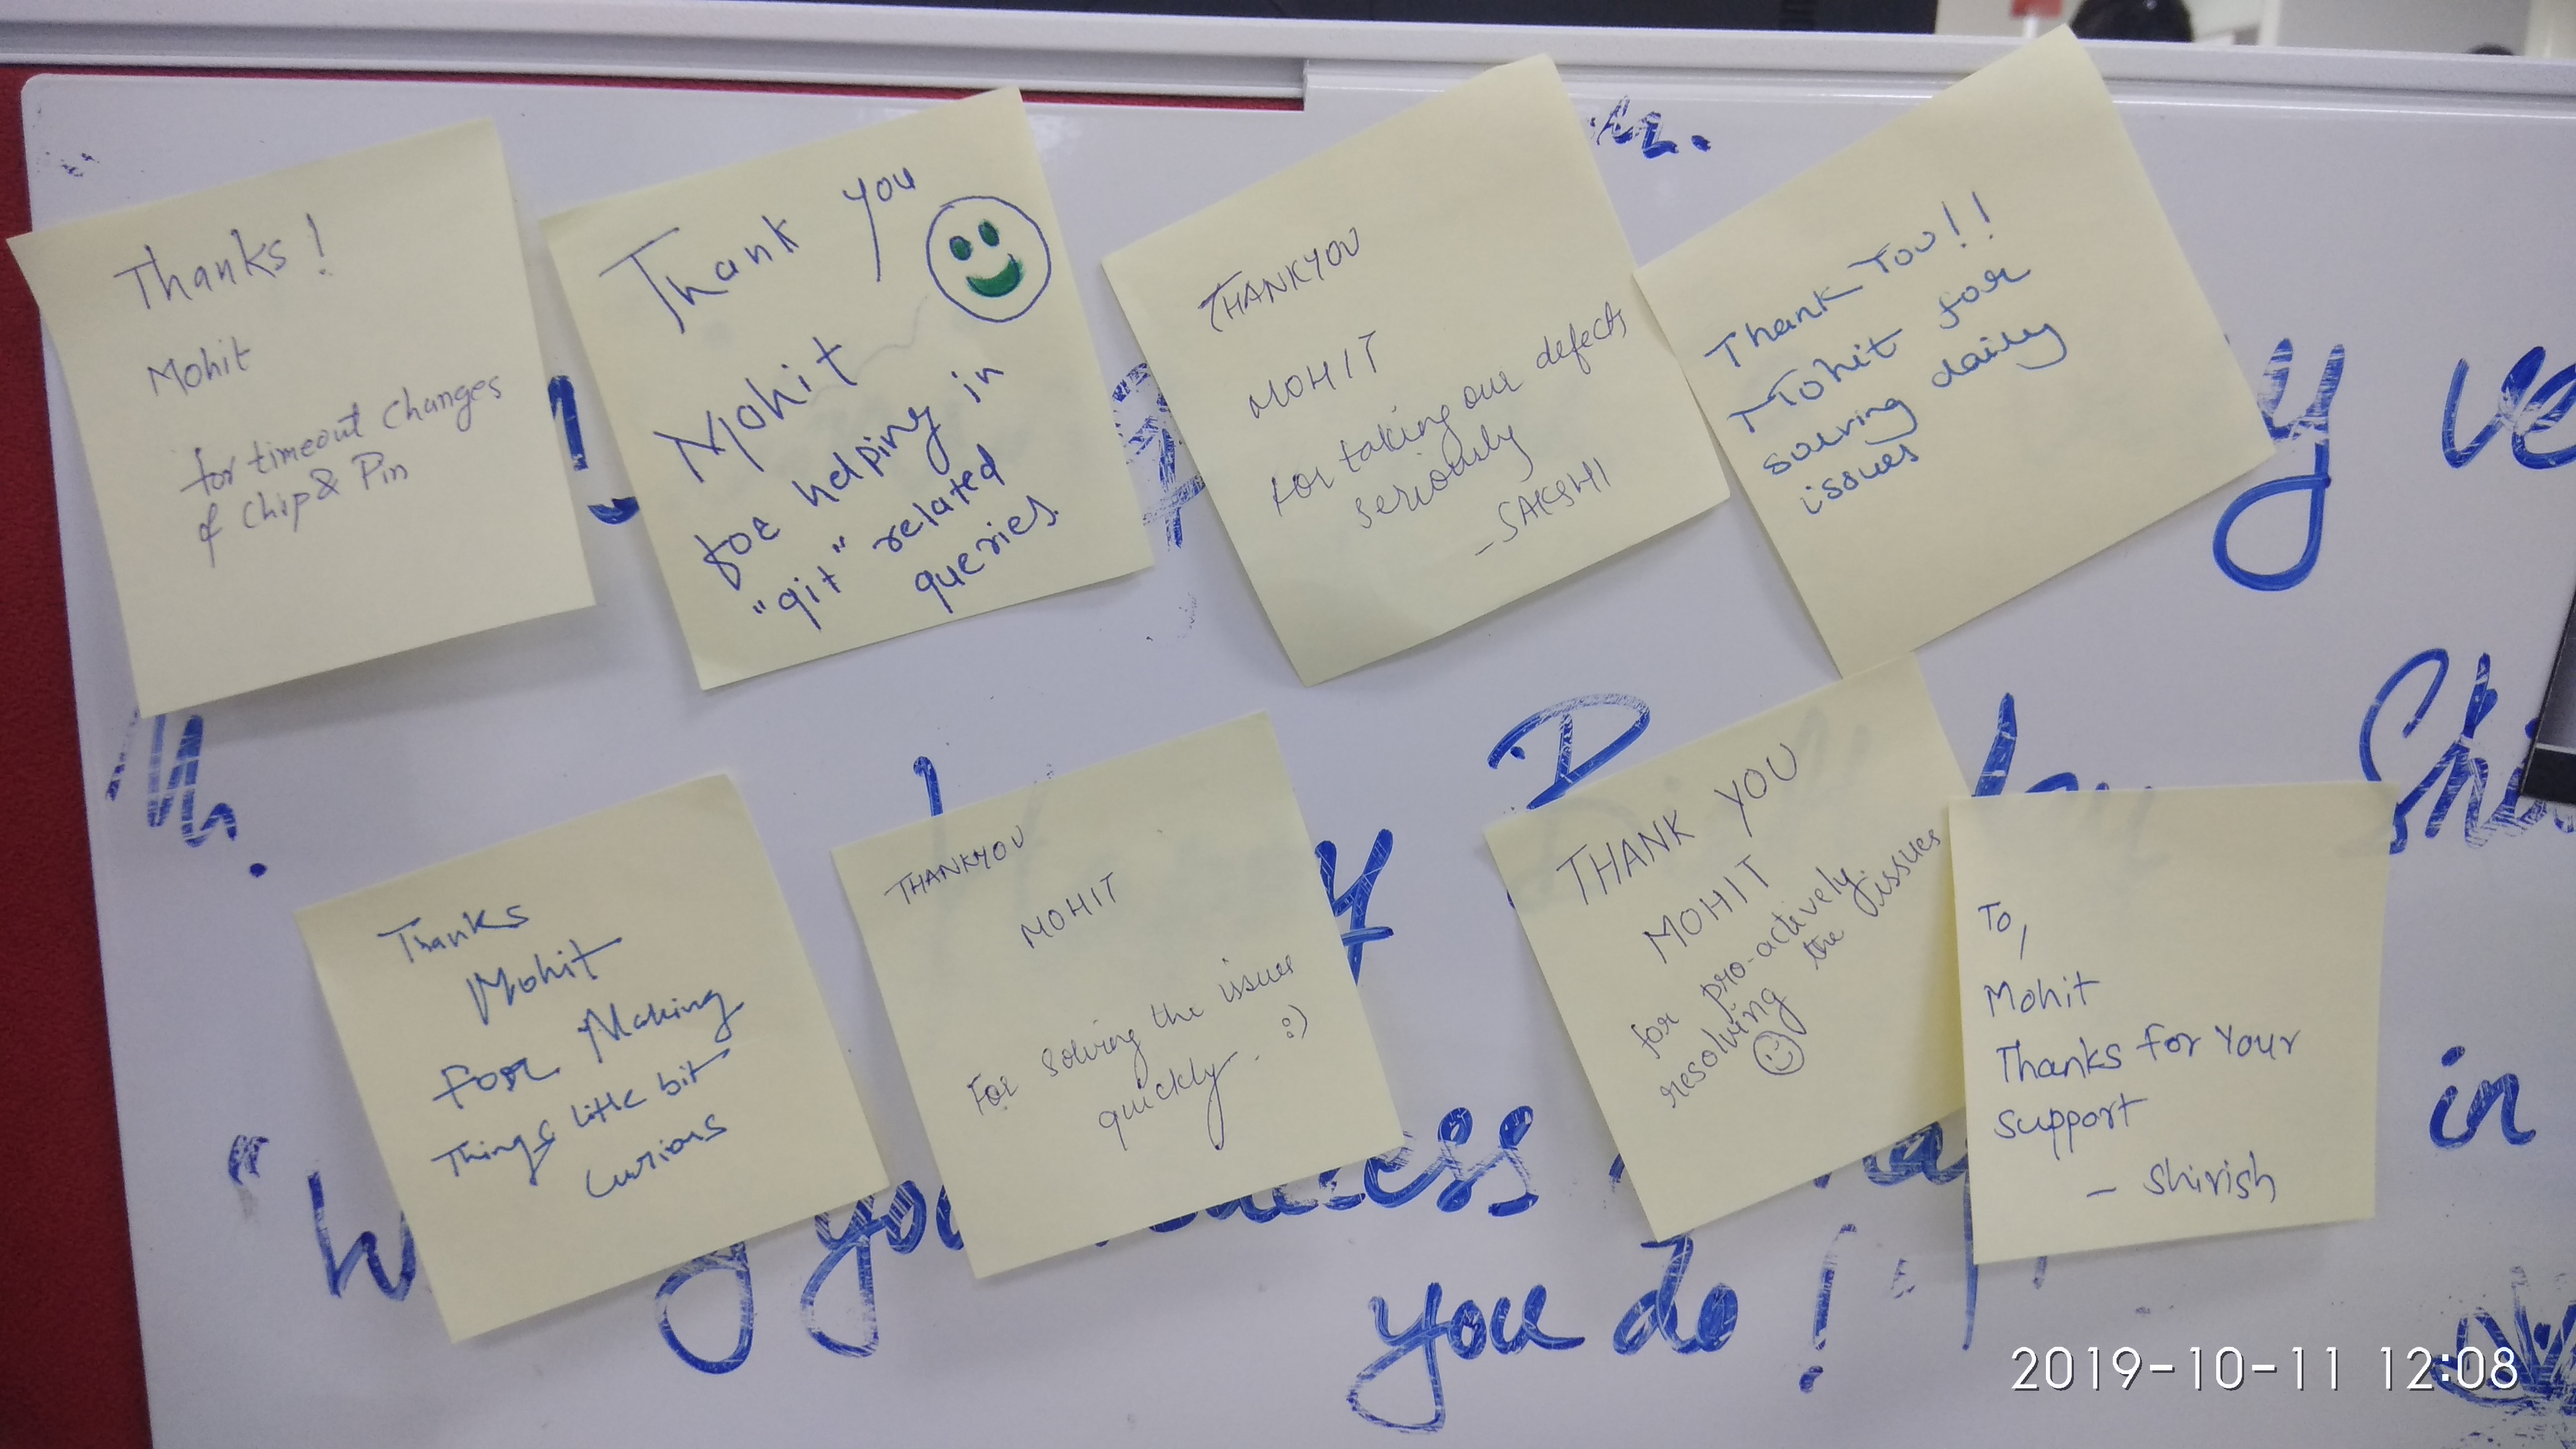 Thanks!
Mohit
for timeout changes
of Chip & Pin
Thank you
Mohit
for helping in
"git" related
queries.
THANKYOU
MOHIT
for taking our defects
seriously
- SAKSHI
Thank You!!
Mohit for
solving daily
issues
Thanks
Mohit
For Making
Things little bit
Curious
THANKYOU
MOHIT
For solving the issues
quickly. :)
THANK YOU
MOHIT
for pro-actively
resolving the issues
To,
Mohit
Thanks for Your
Support
- Shirish
in
you do!
2019-10-11 12:08